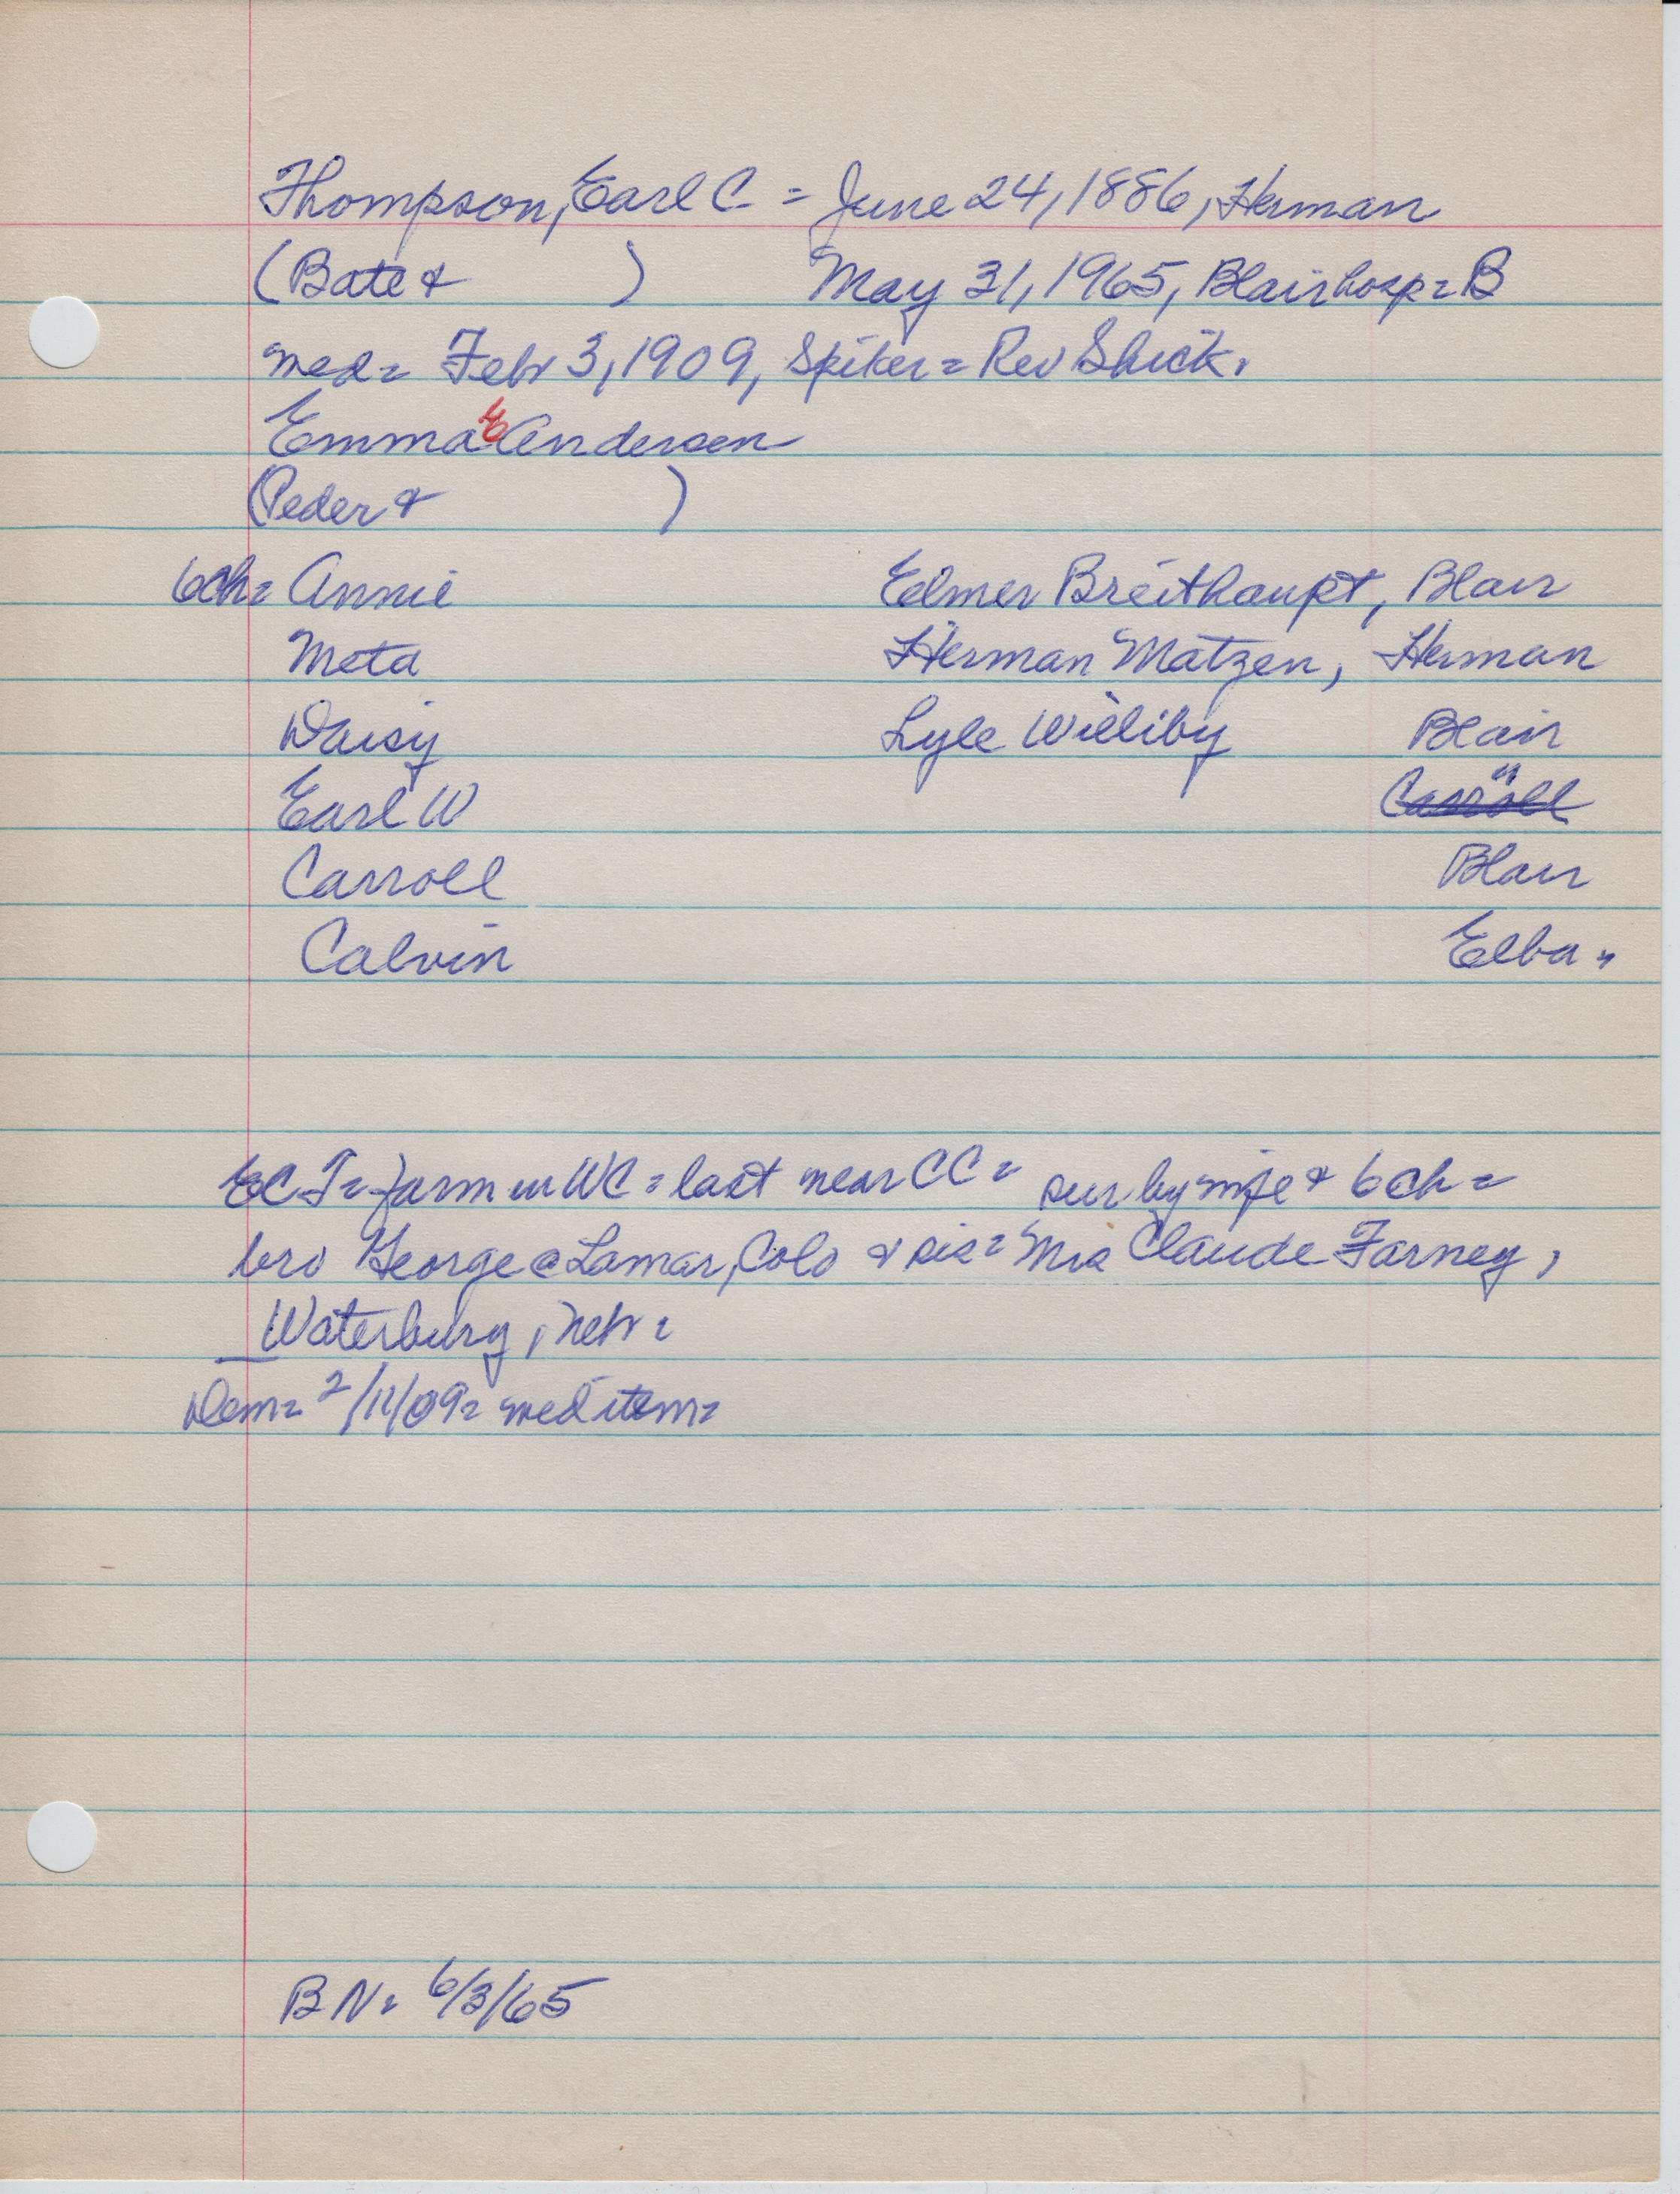 Thompson, Earl C = June 24, 1886, Herman
(Bate & ) May 31, 1965, Blair hosp = B
med = Febr 3, 1909, Spiker = Rev Shick.
Emma E Andersen
(Peder & )
6ch = Annie Elmer Breithaupt, Blair
Meta Herman Matzen, Herman
Daisy Lyle Williby Blair
Earl W Carroll "
Carroll Blair
Calvin Elba "
ECT = farm in WC = last near CC = sur by wife & 6 ch =
bro George @ Lamar, Colo & sis = Mrs Claude Farney,
Waterbury, Nebr =
Dem = 2/11/09 = wed item =
BN = 6/3/65